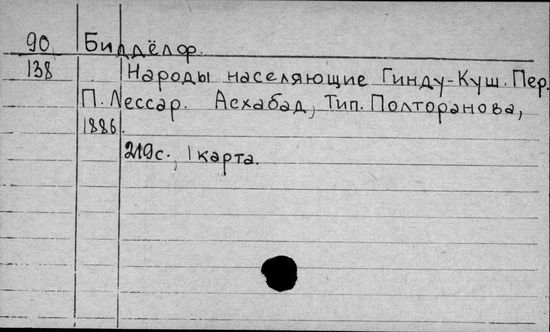 90 Биддёлф.
138 Народы населяющие Гинду-Куш. Пер.
П. Лессар. Асхабад, Тип. Полторанова,
1886.
219с., 1 карта.